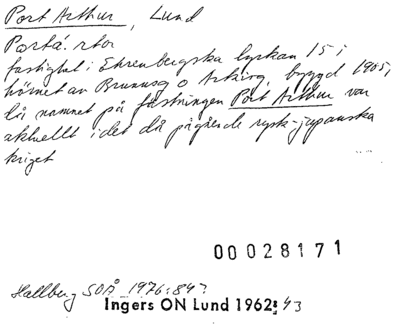 Port Arthur, Lund
fastighet i Ehrenbergska lyckan 15 i
hörnet av Brunnsg o Arkivg, byggd 1905,
då namnet på fästningen Port Arthur var
aktuellt i det då pågående rysk-japanska
kriget
00028171
Hallberg SOÅ 1976:84?
Ingers ON Lund 1962: 43